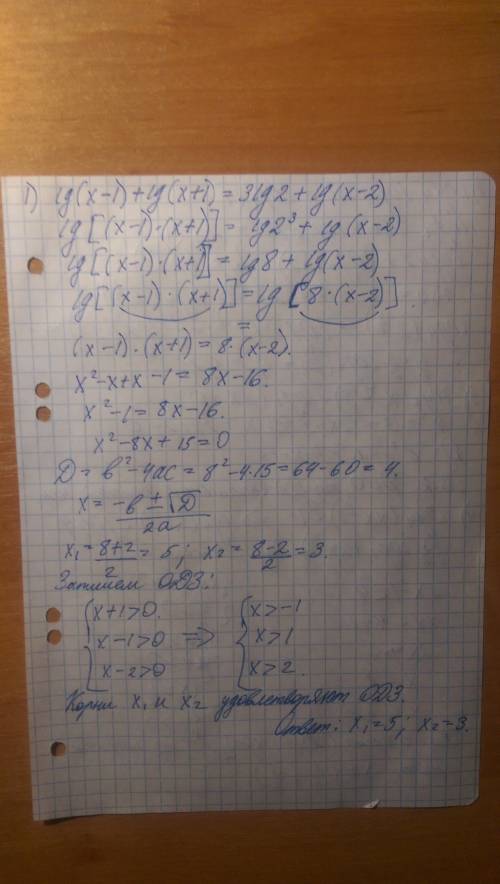 1) lg(x-1)+lg(x+1)=3lg2+lg(x-2)
lg[(x-1)·(x+1)]= lg2³+lg(x-2)
lg[(x-1)·(x+1)]=lg8+lg(x-2)
lg[(x-1)·(x+1)]=lg[8·(x-2)].
=
(x-1)·(x+1)=8·(x-2).
x²-x+x-1=8x-16.
x²-1=8x-16.
x²-8x+15=0
D=b²-4ac=8²-4·15=64-60=4.
x=(-b±√D)/2a
x₁=(8+2)/2=5; x₂=(8-2)/2=3.
Запишем ОДЗ:
{x+1>0. {x>-1
{x-1>0 => {x>1
{x-2>0 {x>2.
Корни x₁ и x₂ удовлетворяют ОДЗ.
Ответ: x₁=5; x₂=3.